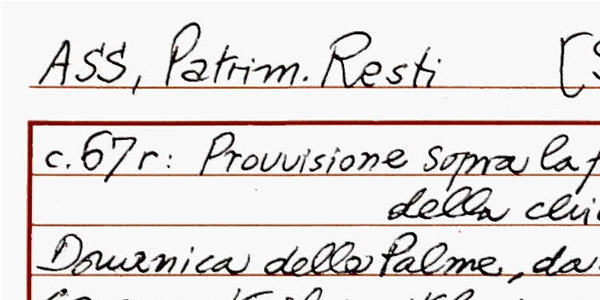 ASS, Patrim. Resti [S
c.67r: Provvisione sopra la f
della chi
Domenica delle Palme, da